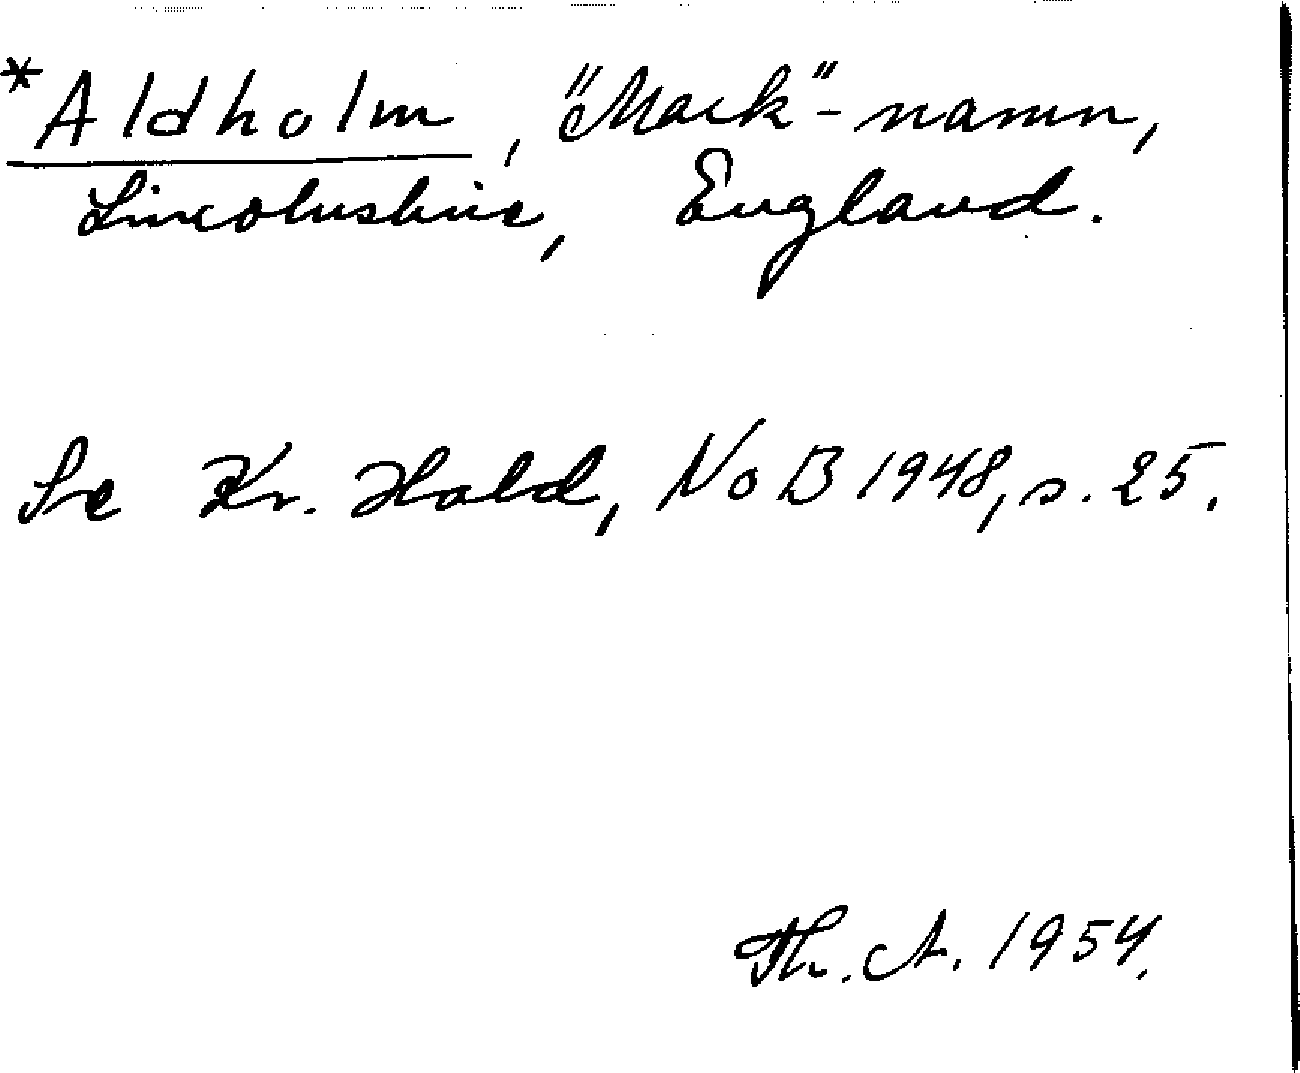 *Aldholm, "Mark"-namn,
Lincolnshire, England.
Se Kr. Hald, NoB 1948, s. 25.
Th. A. 1954.